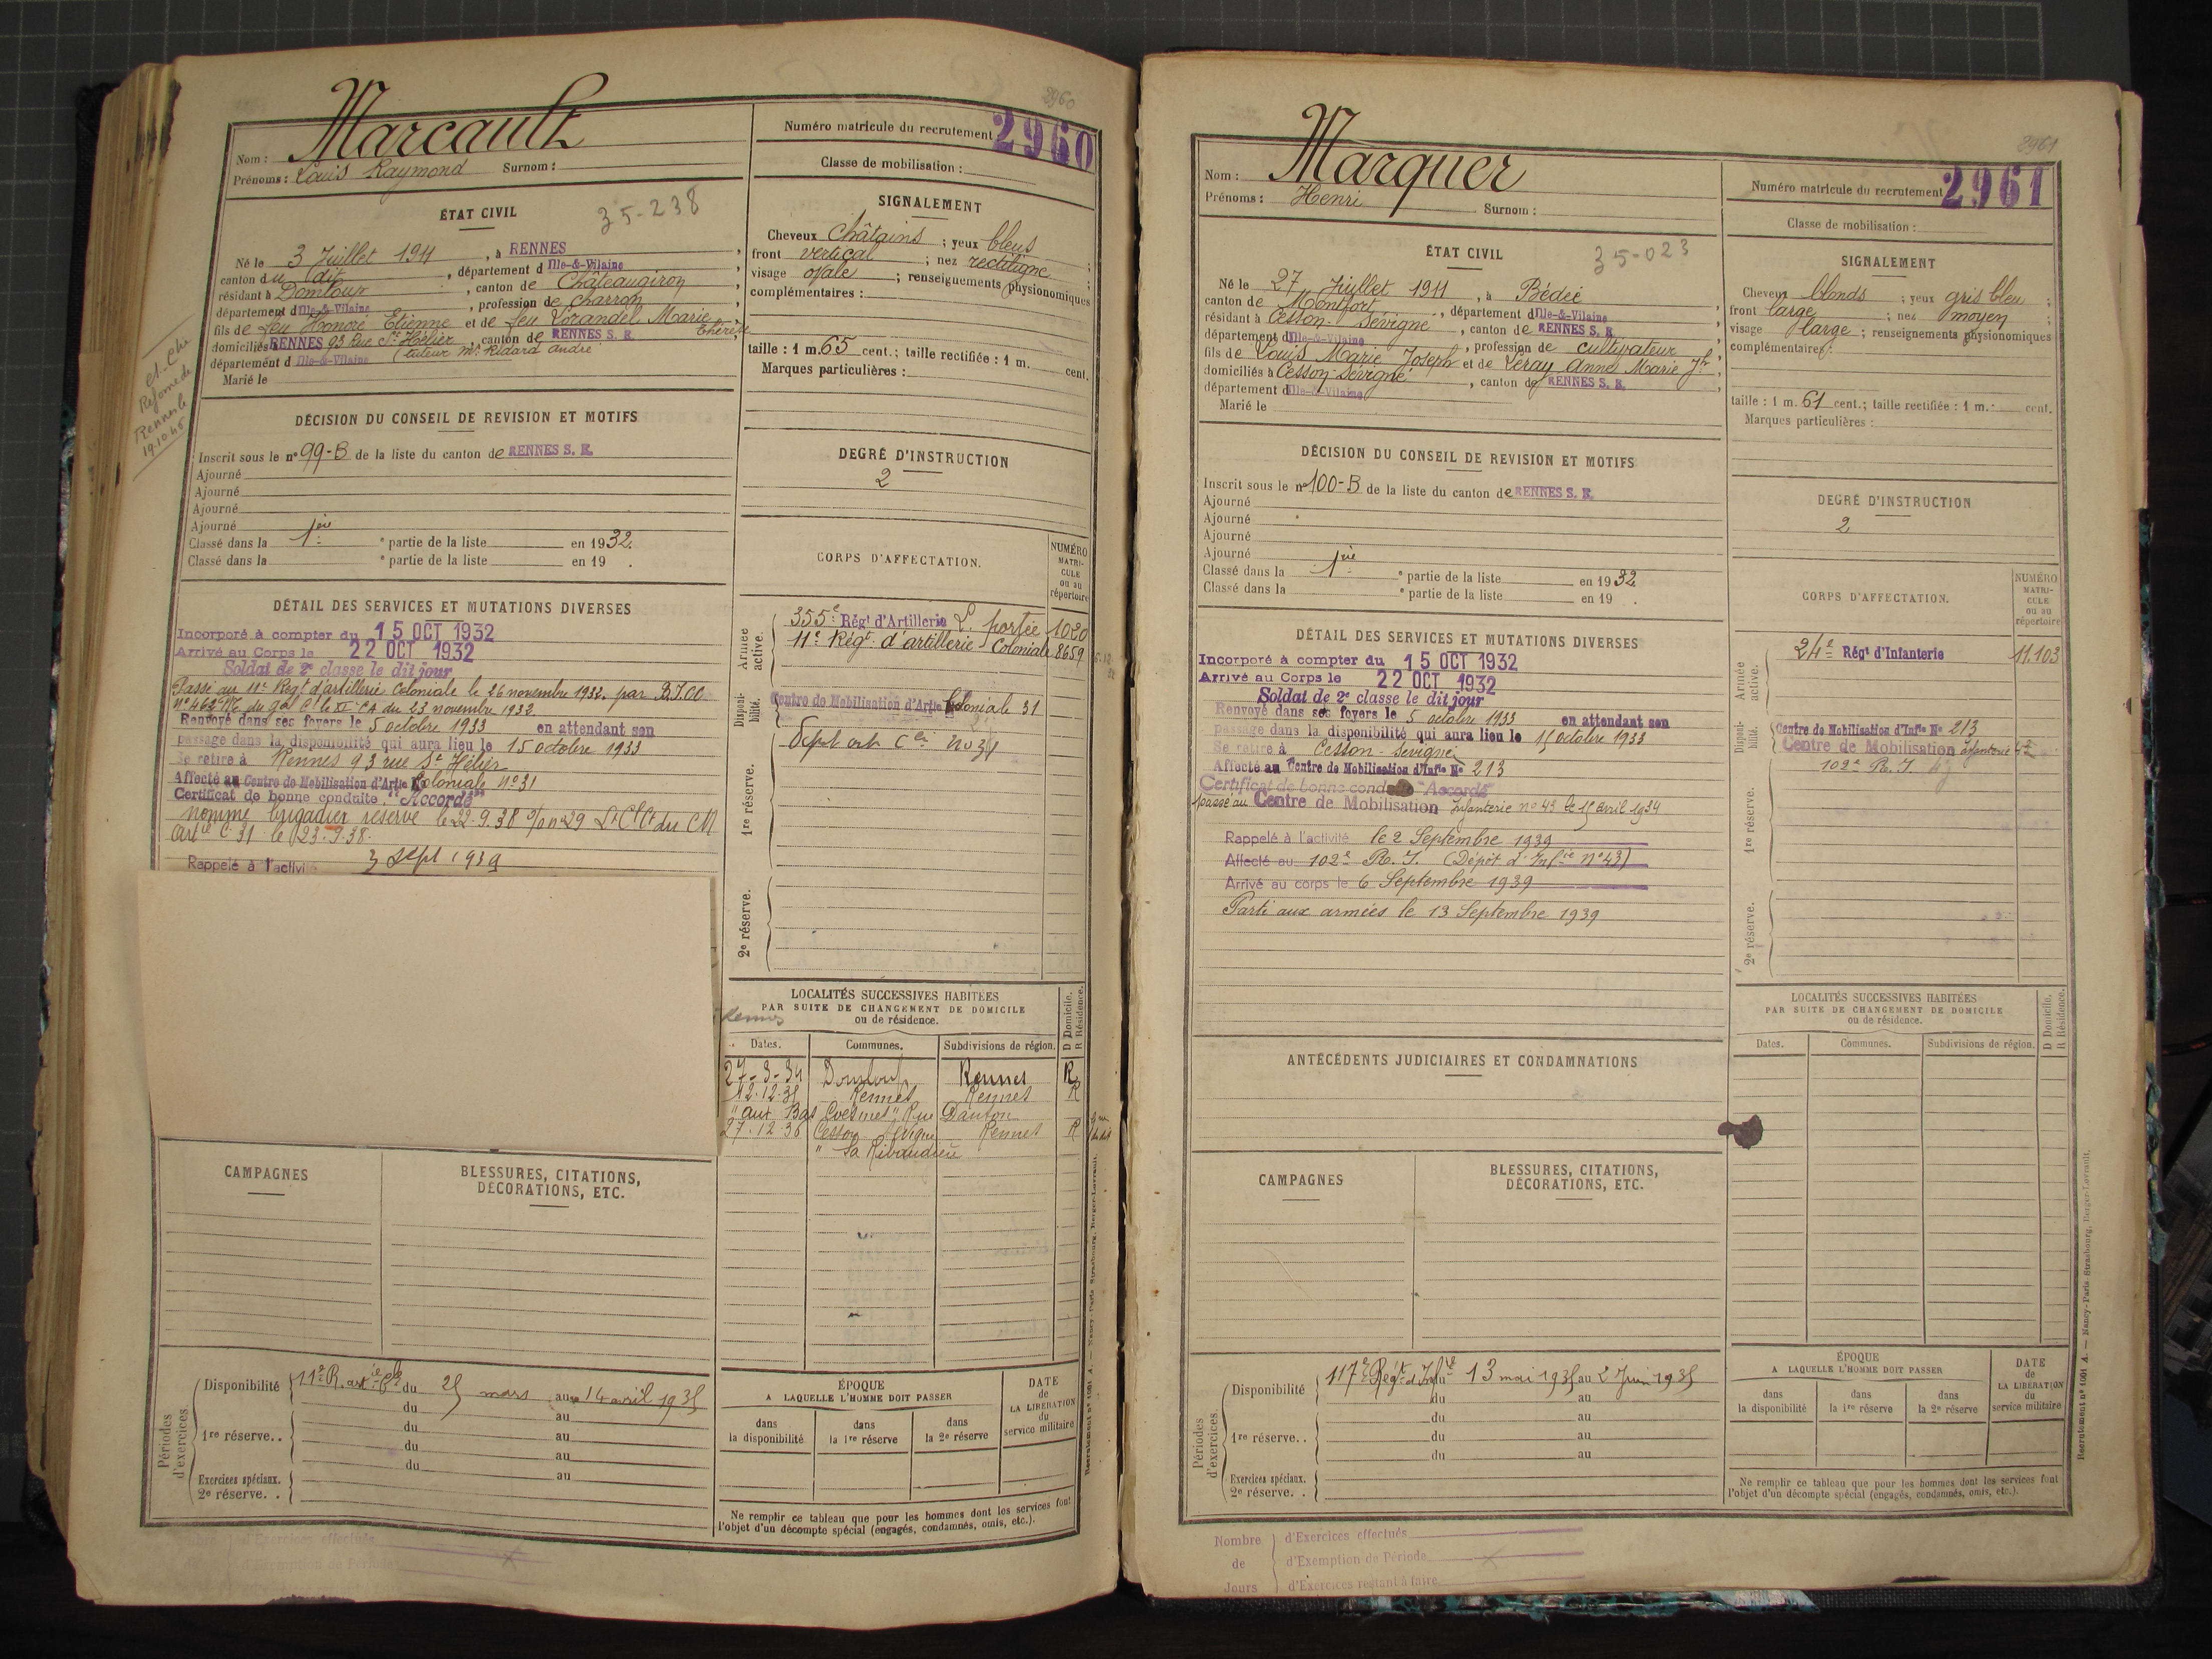 2960
Marcault
Nom :
Prénoms : Louis Raymond Surnom :
Numéro matricule du recrutement 2960
Classe de mobilisation :
ÉTAT CIVIL
35-238
Né le 3 Juillet 1911, à RENNES,
canton du dit, département d Ille-&-Vilaine,
résidant à Domloup, canton de Châteaugiron,
département d Ille-&-Vilaine, profession de charron,
fils de feu Honoré Etienne et de feu Lorandel Marie Thérèse
domiciliés à RENNES 93 Rue St Hélier, canton de RENNES S. E.
département d Ille-&-Vilaine (tuteur Mr Ridard André
Marié le
SIGNALEMENT
Cheveux châtains ; yeux bleus ;
front vertical ; nez rectiligne ;
visage ovale ; renseignements physionomiques
complémentaires :
taille : 1 m. 65 cent.; taille rectifiée : 1 m. cent.
Marques particulières :
Réformé
Rennes le
19.10.45
DÉCISION DU CONSEIL DE REVISION ET MOTIFS
Inscrit sous le n° 99-B de la liste du canton de RENNES S. E.
Ajourné
Ajourné
Ajourné
Ajourné
Classé dans la 1ère e partie de la liste en 1932.
Classé dans la e partie de la liste en 19 .
DEGRÉ D'INSTRUCTION
2
DÉTAIL DES SERVICES ET MUTATIONS DIVERSES
Incorporé à compter du 15 OCT 1932
Arrivé au Corps le 22 OCT 1932
Soldat de 2e classe le dit jour
Passé au 11e Régt d'artillerie Coloniale le 26 novembre 1932. par
du 23 novembre 1932
Renvoyé dans ses foyers le 5 octobre 1933 en attendant son
passage dans la disponibilité qui aura lieu le 15 octobre 1933
Se retire à Rennes 93 rue St Hélier
Affecté au Centre de Mobilisation d'Artie Coloniale n° 31
Certificat de bonne conduite "Accordé"
nommé brigadier réserve le 22.9.38 o/o n° 29 Lt Cl Ct du CM
Artie C. 31 le 23.9.38.
Rappelé à l'activité 3 sept 1939
CORPS D'AFFECTATION.
NUMÉRO MATRICULE ou au répertoire
Armée active.
355e Régt d'Artillerie L. portée 1020
11e Régt d'artillerie Coloniale 8659
Disponibilité.
Centre de Mobilisation d'Artie Coloniale 31
1re réserve.
Dépôt art Cle no 31
2e réserve.
LOCALITÉS SUCCESSIVES HABITÉES
PAR SUITE DE CHANGEMENT DE DOMICILE
ou de résidence.
Rennes
D Domicile. R Résidence.
Dates. Communes. Subdivisions de région.
27-3-34 Domloup Rennes R
12.12.35 Rennes Rennes R
" aux Bas Coësmes " Rue Danton
27.12.36 Cesson Sévigné Rennes R
" La Ribaudière
CAMPAGNES
BLESSURES, CITATIONS,
DÉCORATIONS, ETC.
Périodes d'exercices.
Disponibilité 11e R. artie Cle du 25 mars au 14 avril 1935
du au
1re réserve. . du au
du au
du au
Exercices spéciaux.
2e réserve. .
ÉPOQUE
A LAQUELLE L'HOMME DOIT PASSER
dans la disponibilité
dans la 1re réserve
dans la 2e réserve
DATE de LA LIBÉRATION du service militaire
Ne remplir ce tableau que pour les hommes dont les services font
l'objet d'un décompte spécial (engagés, condamnés, omis, etc.).
d'Exercices effectués
d'Exemption de Période
Recrutement n° 1001 A. — Nancy-Paris-Strasbourg, Berger-Levrault.
2961
Marquer
Nom :
Prénoms : Henri Surnom :
Numéro matricule du recrutement 2961
Classe de mobilisation :
ÉTAT CIVIL
35-023
Né le 27 Juillet 1911, à Bédée
canton de Montfort, département d Ille-&-Vilaine,
résidant à Cesson-Sévigné, canton de RENNES S. E.
département d Ille-&-Vilaine, profession de cultivateur,
fils de Louis Marie Joseph et de Léray Anne Marie Jh,
domiciliés à Cesson-Sévigné, canton de RENNES S. E.
département d Ille-&-Vilaine
Marié le
SIGNALEMENT
Cheveux blonds ; yeux gris bleu ;
front large ; nez moyen ;
visage large ; renseignements physionomiques
complémentaires :
taille : 1 m. 61 cent.; taille rectifiée : 1 m. cent.
Marques particulières :
DÉCISION DU CONSEIL DE REVISION ET MOTIFS
Inscrit sous le n° 100-B de la liste du canton de RENNES S. E.
Ajourné
Ajourné
Ajourné
Ajourné
Classé dans la 1ère e partie de la liste en 1932
Classé dans la e partie de la liste en 19 .
DEGRÉ D'INSTRUCTION
2
DÉTAIL DES SERVICES ET MUTATIONS DIVERSES
Incorporé à compter du 15 OCT 1932
Arrivé au Corps le 22 OCT 1932
Soldat de 2e classe le dit jour
Renvoyé dans ses foyers le 5 octobre 1933 en attendant son
passage dans la disponibilité qui aura lieu le 15 octobre 1933
Se retire à Cesson-Sévigné
Affecté au Centre de Mobilisation d'Infie N° 213
Certificat de bonne conduite "Accordé"
Passé au Centre de Mobilisation Infanterie n° 43 le 15 avril 1934
Rappelé à l'activité le 2 Septembre 1939
Affecté au 102e R. I. (Dépôt d'Infie n° 43)
Arrivé au corps le 6 Septembre 1939
Parti aux armées le 13 Septembre 1939
CORPS D'AFFECTATION.
NUMÉRO MATRICULE ou au répertoire
Armée active.
24e Régt d'Infanterie 11.103
Disponibilité.
Centre de Mobilisation d'Infie N° 213
Centre de Mobilisation Infanterie 43
1re réserve.
102e R. I.
2e réserve.
ANTÉCÉDENTS JUDICIAIRES ET CONDAMNATIONS
LOCALITÉS SUCCESSIVES HABITÉES
PAR SUITE DE CHANGEMENT DE DOMICILE
ou de résidence.
D Domicile. R Résidence.
Dates. Communes. Subdivisions de région.
CAMPAGNES
BLESSURES, CITATIONS,
DÉCORATIONS, ETC.
Périodes d'exercices.
Disponibilité 117e Régt d'Infie du 13 mai 1935 au 2 Juin 1935
du au
du au
1re réserve. . du au
du au
Exercices spéciaux.
2e réserve. .
ÉPOQUE
A LAQUELLE L'HOMME DOIT PASSER
dans la disponibilité
dans la 1re réserve
dans la 2e réserve
DATE de LA LIBÉRATION du service militaire
Ne remplir ce tableau que pour les hommes dont les services font
l'objet d'un décompte spécial (engagés, condamnés, omis, etc.).
Nombre de Jours
d'Exercices effectués
d'Exemption de Période
d'Exercices restant à faire
Recrutement n° 1001 A. — Nancy-Paris-Strasbourg, Berger-Levrault.